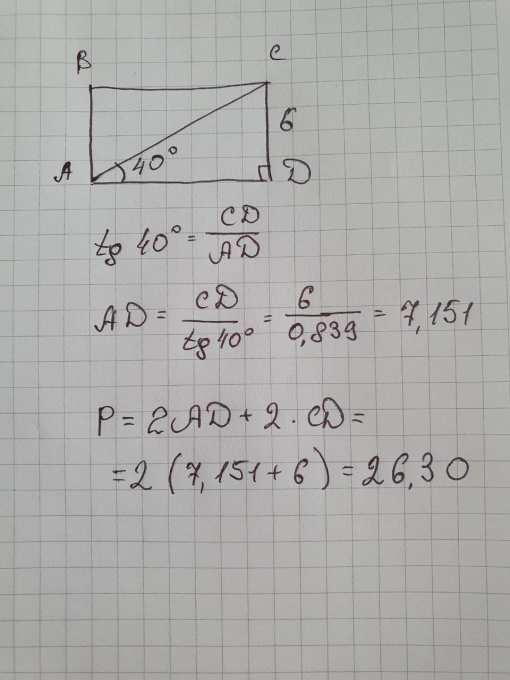 B C
6
A 40° D
tg 40° = CD/AD
AD = CD/tg 40° = 6/0,839 = 7,151
P = 2AD + 2 · CD =
= 2 (7,151 + 6) = 26,30